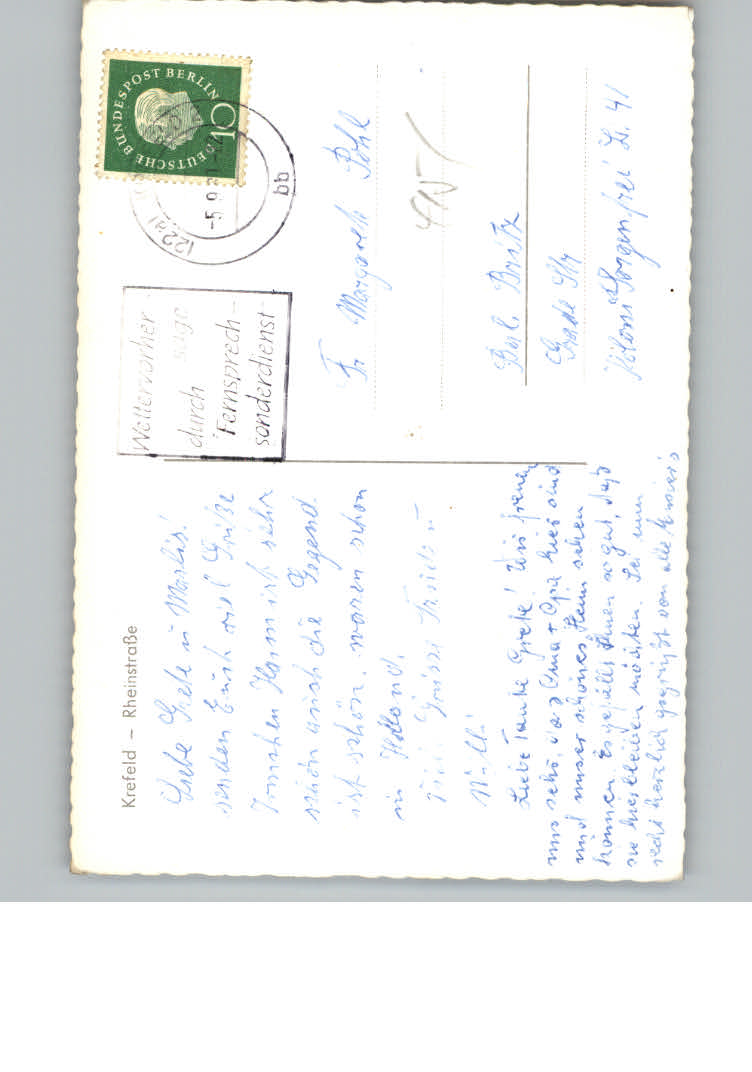 Krefeld – Rheinstraße
Liebe Grete u Marlis!
senden Euch viel Grüße
haben sehr
schön auch die Gegend.
ist schön. waren schon
in Holland.
Viele Grüsse
Willi
Liebe Tante Grete! Wir freuen
uns sehr, das Oma + Opa hier sind
und unser schönes Heim sehen
können. Es gefällt Ihnen so gut, daß
sie hierbleiben möchten. Sei nun
recht herzlich gegrüßt von
DEUTSCHE BUNDESPOST BERLIN
10
(22a)
-5.9.
bb
Wettervorher-
sage
durch
Fernsprech-
sonderdienst
Fr Margarete Pohl
Berl. Britz
Grade Str
Kolonie Sorgenfrei Z. 41